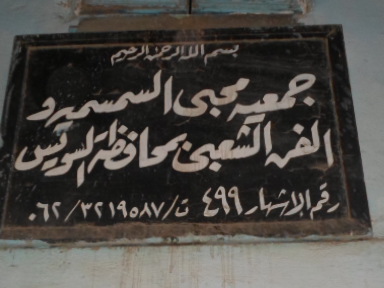 بسم الله الرحمن الرحيم
جمعيه محبى السمسميه و
الفن الشعبى بمحافظة السويس
رقم الاشهار ٤٩٩ ت/٣٢١٩٥٨٧/٠٦٢